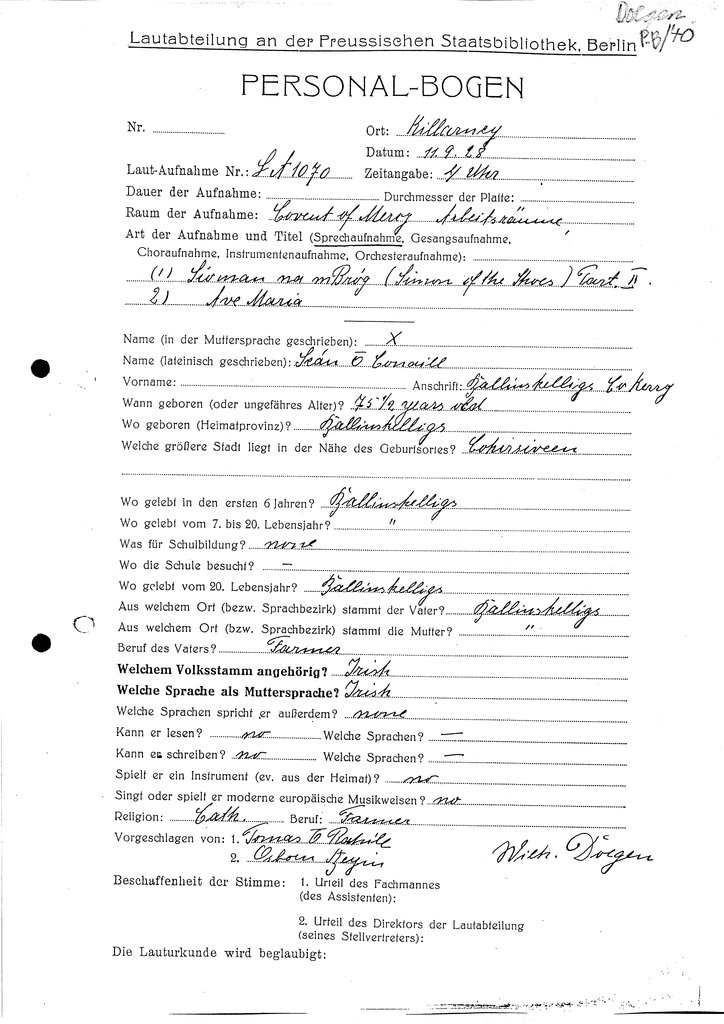 Doegen
P-B/40
Lautabteilung an der Preussischen Staatsbibliothek, Berlin
PERSONAL-BOGEN
Nr.
Ort: Killarney
Datum: 11.9.28
Laut-Aufnahme Nr.: LA 1070 Zeitangabe: 4 Uhr
Dauer der Aufnahme: Durchmesser der Platte:
Raum der Aufnahme: Covent of Mercy Arbeitsräume,
Art der Aufnahme und Titel (Sprechaufnahme, Gesangsaufnahme,
Choraufnahme, Instrumentenaufnahme, Orchesteraufnahme):
(1) Síoman na mBróg (Simon of the Shoes) Part. II.
2) Ave Maria
Name (in der Muttersprache geschrieben): X
Name (lateinisch geschrieben): Seán Ó Conaill
Vorname: Anschrift: Ballinskelligs Co Kerry
Wann geboren (oder ungefähres Alter)? 75 1/2 years old
Wo geboren (Heimatprovinz)? Ballinskelligs
Welche größere Stadt liegt in der Nähe des Geburtsortes? Cohirsiveen
Wo gelebt in den ersten 6 Jahren? Ballinskelligs
Wo gelebt vom 7. bis 20. Lebensjahr? "
Was für Schulbildung? none
Wo die Schule besucht? —
Wo gelebt vom 20. Lebensjahr? Ballinskelligs
Aus welchem Ort (bezw. Sprachbezirk) stammt der Vater? Ballinskelligs
Aus welchem Ort (bzw. Sprachbezirk) stammt die Mutter? "
Beruf des Vaters? Farmer
Welchem Volksstamm angehörig? Irish
Welche Sprache als Muttersprache? Irish
Welche Sprachen spricht er außerdem? none
Kann er lesen? no Welche Sprachen? —
Kann er schreiben? no Welche Sprachen? —
Spielt er ein Instrument (ev. aus der Heimat)? no
Singt oder spielt er moderne europäische Musikweisen? no
Religion: Cath. Beruf: Farmer
Vorgeschlagen von: 1. Tomas Ó
2. Osborn Bergin
Wilh. Doegen
Beschaffenheit der Stimme: 1. Urteil des Fachmannes
(des Assistenten):
2. Urteil des Direktors der Lautabteilung
(seines Stellvertreters):
Die Lauturkunde wird beglaubigt: